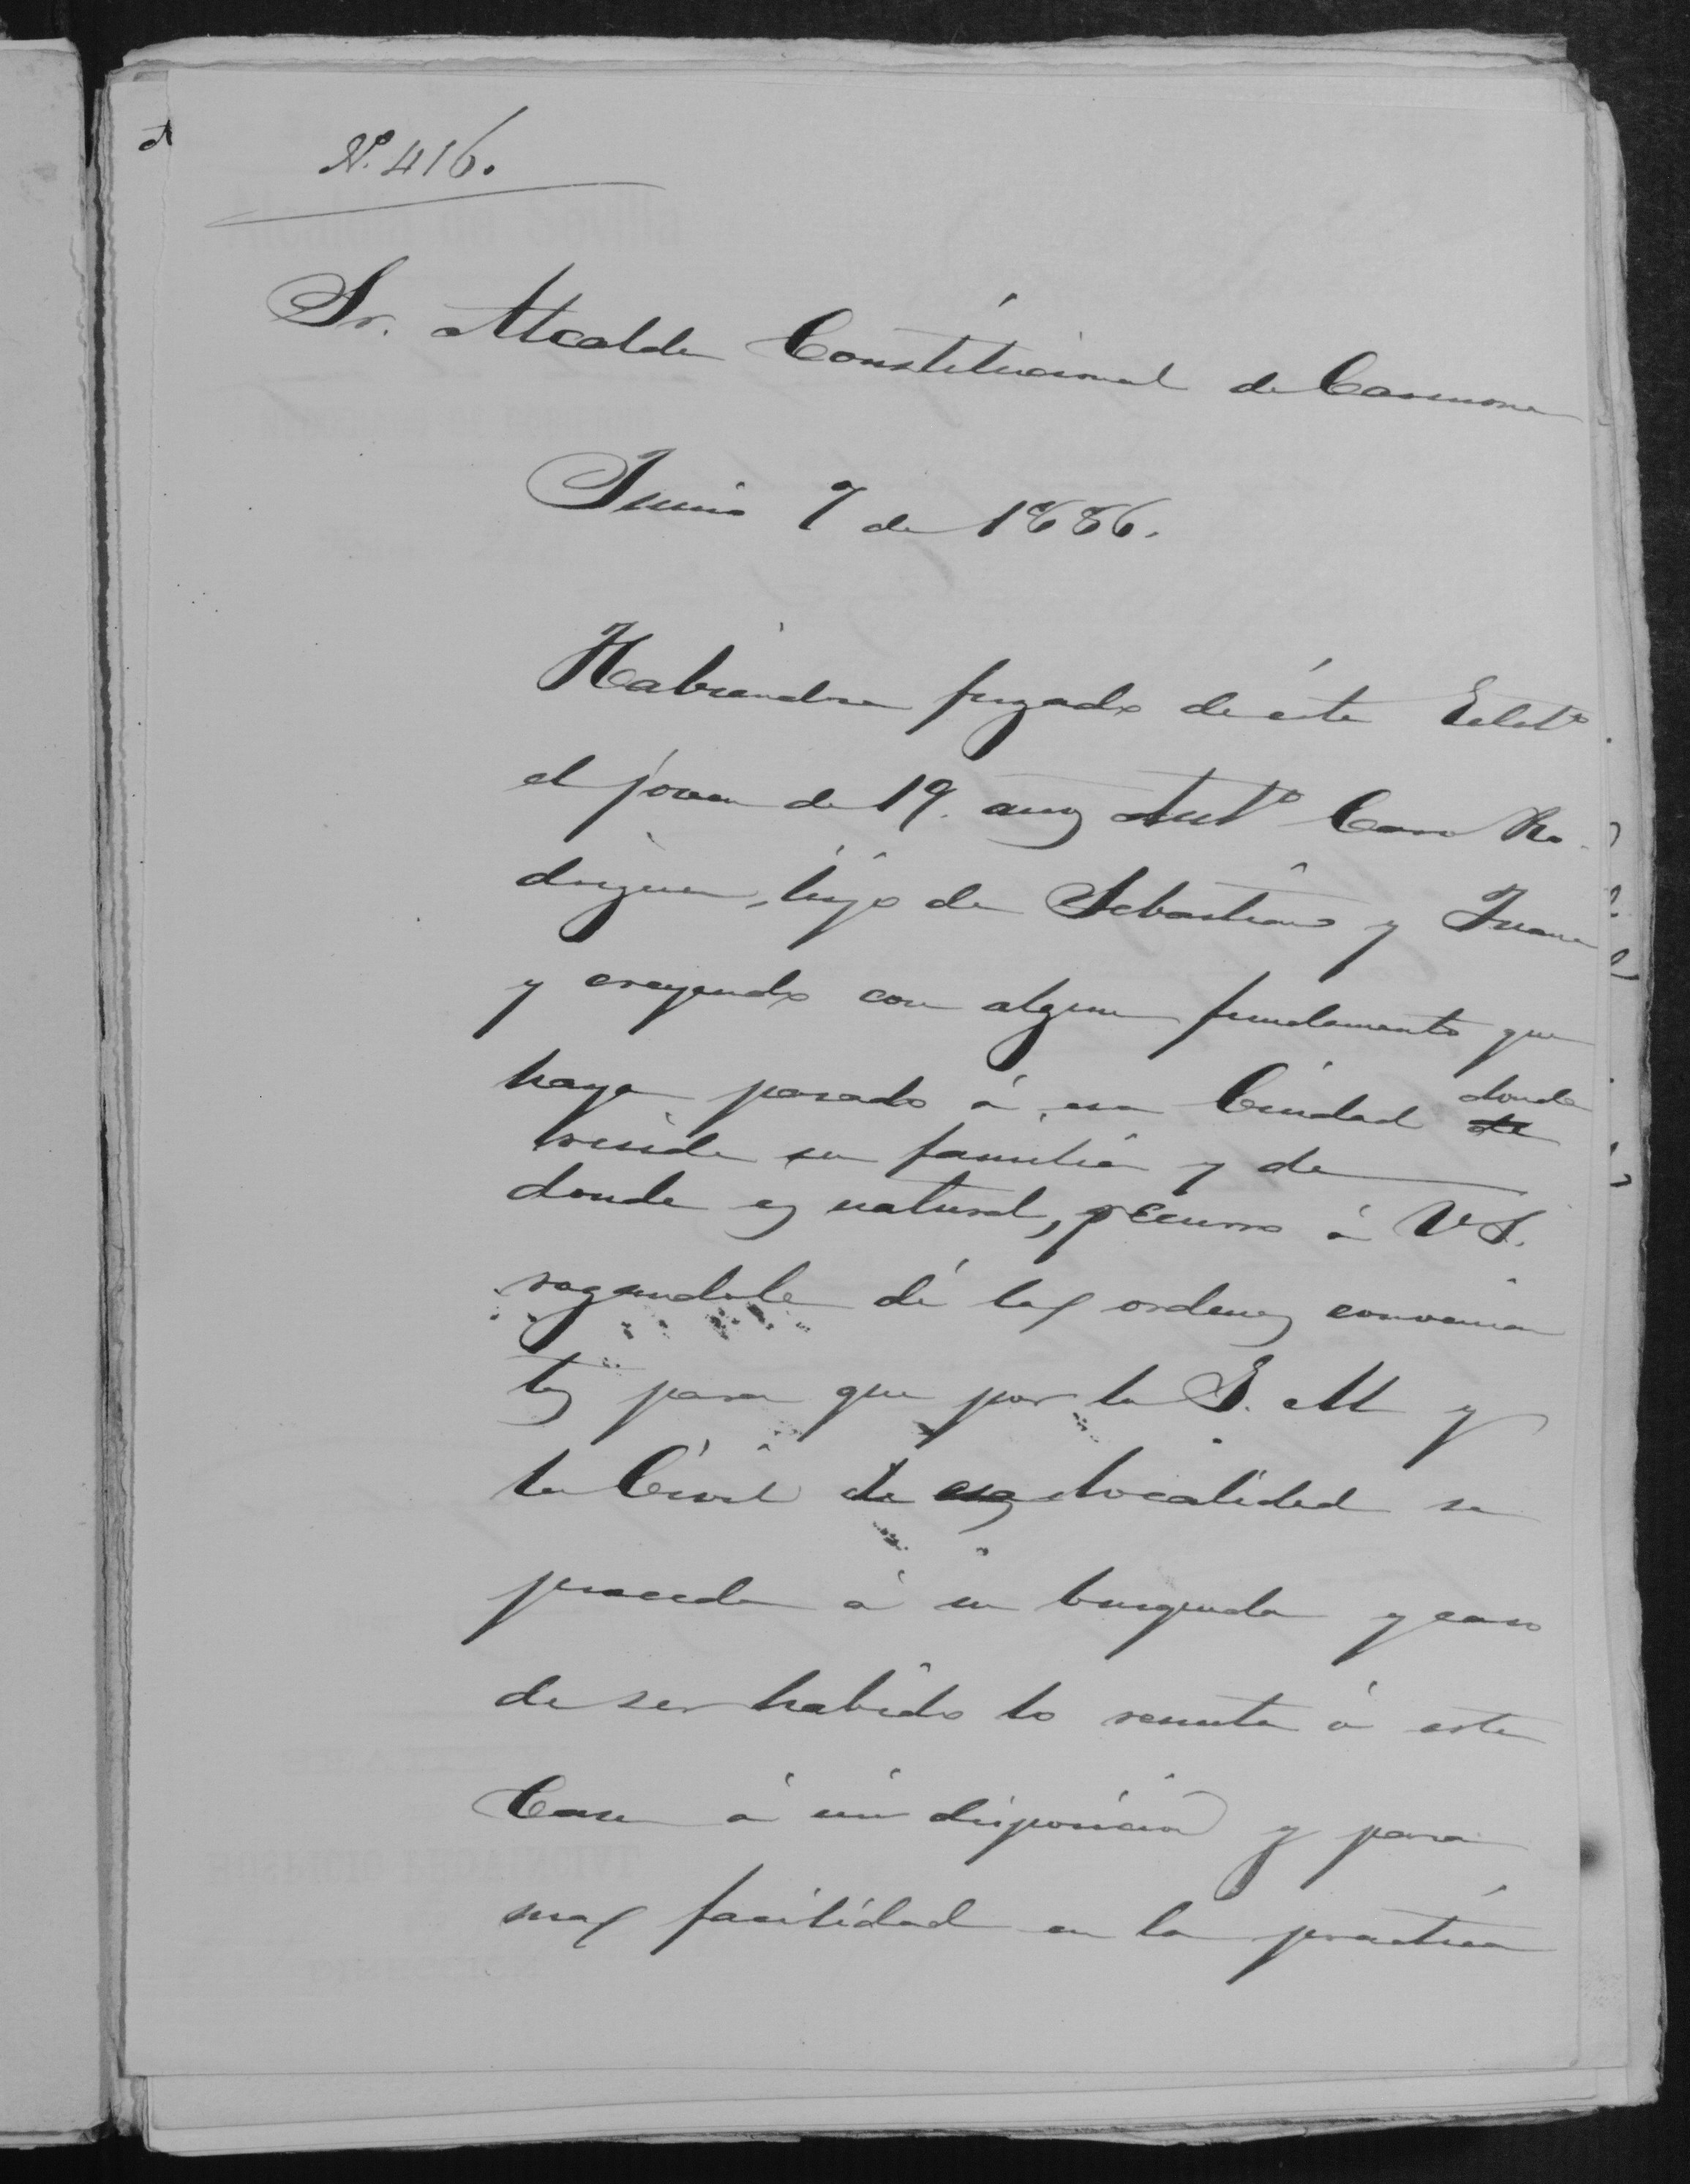 N.º 416.
Sr. Alcalde Constitucional de Carmona
Junio 7 de 1886.
Habiendose fugado de éste Estbº
el joven de 19. años Antº Caro Ro-
driguez, hijo de Sebastian y Juana
y creyendo con algun fundamento que
haya pasado á esa Ciudad donde
reside su familia y de
donde es natural, recurro á V.S.
rogandole dé las ordenes convenien
tes para que por la G. M y
la Civil de esa localidad se
proceda á su busqueda y caso
de ser habido lo remita á esta
Casa á mi disposicion y para
mas facilidad en la práctica